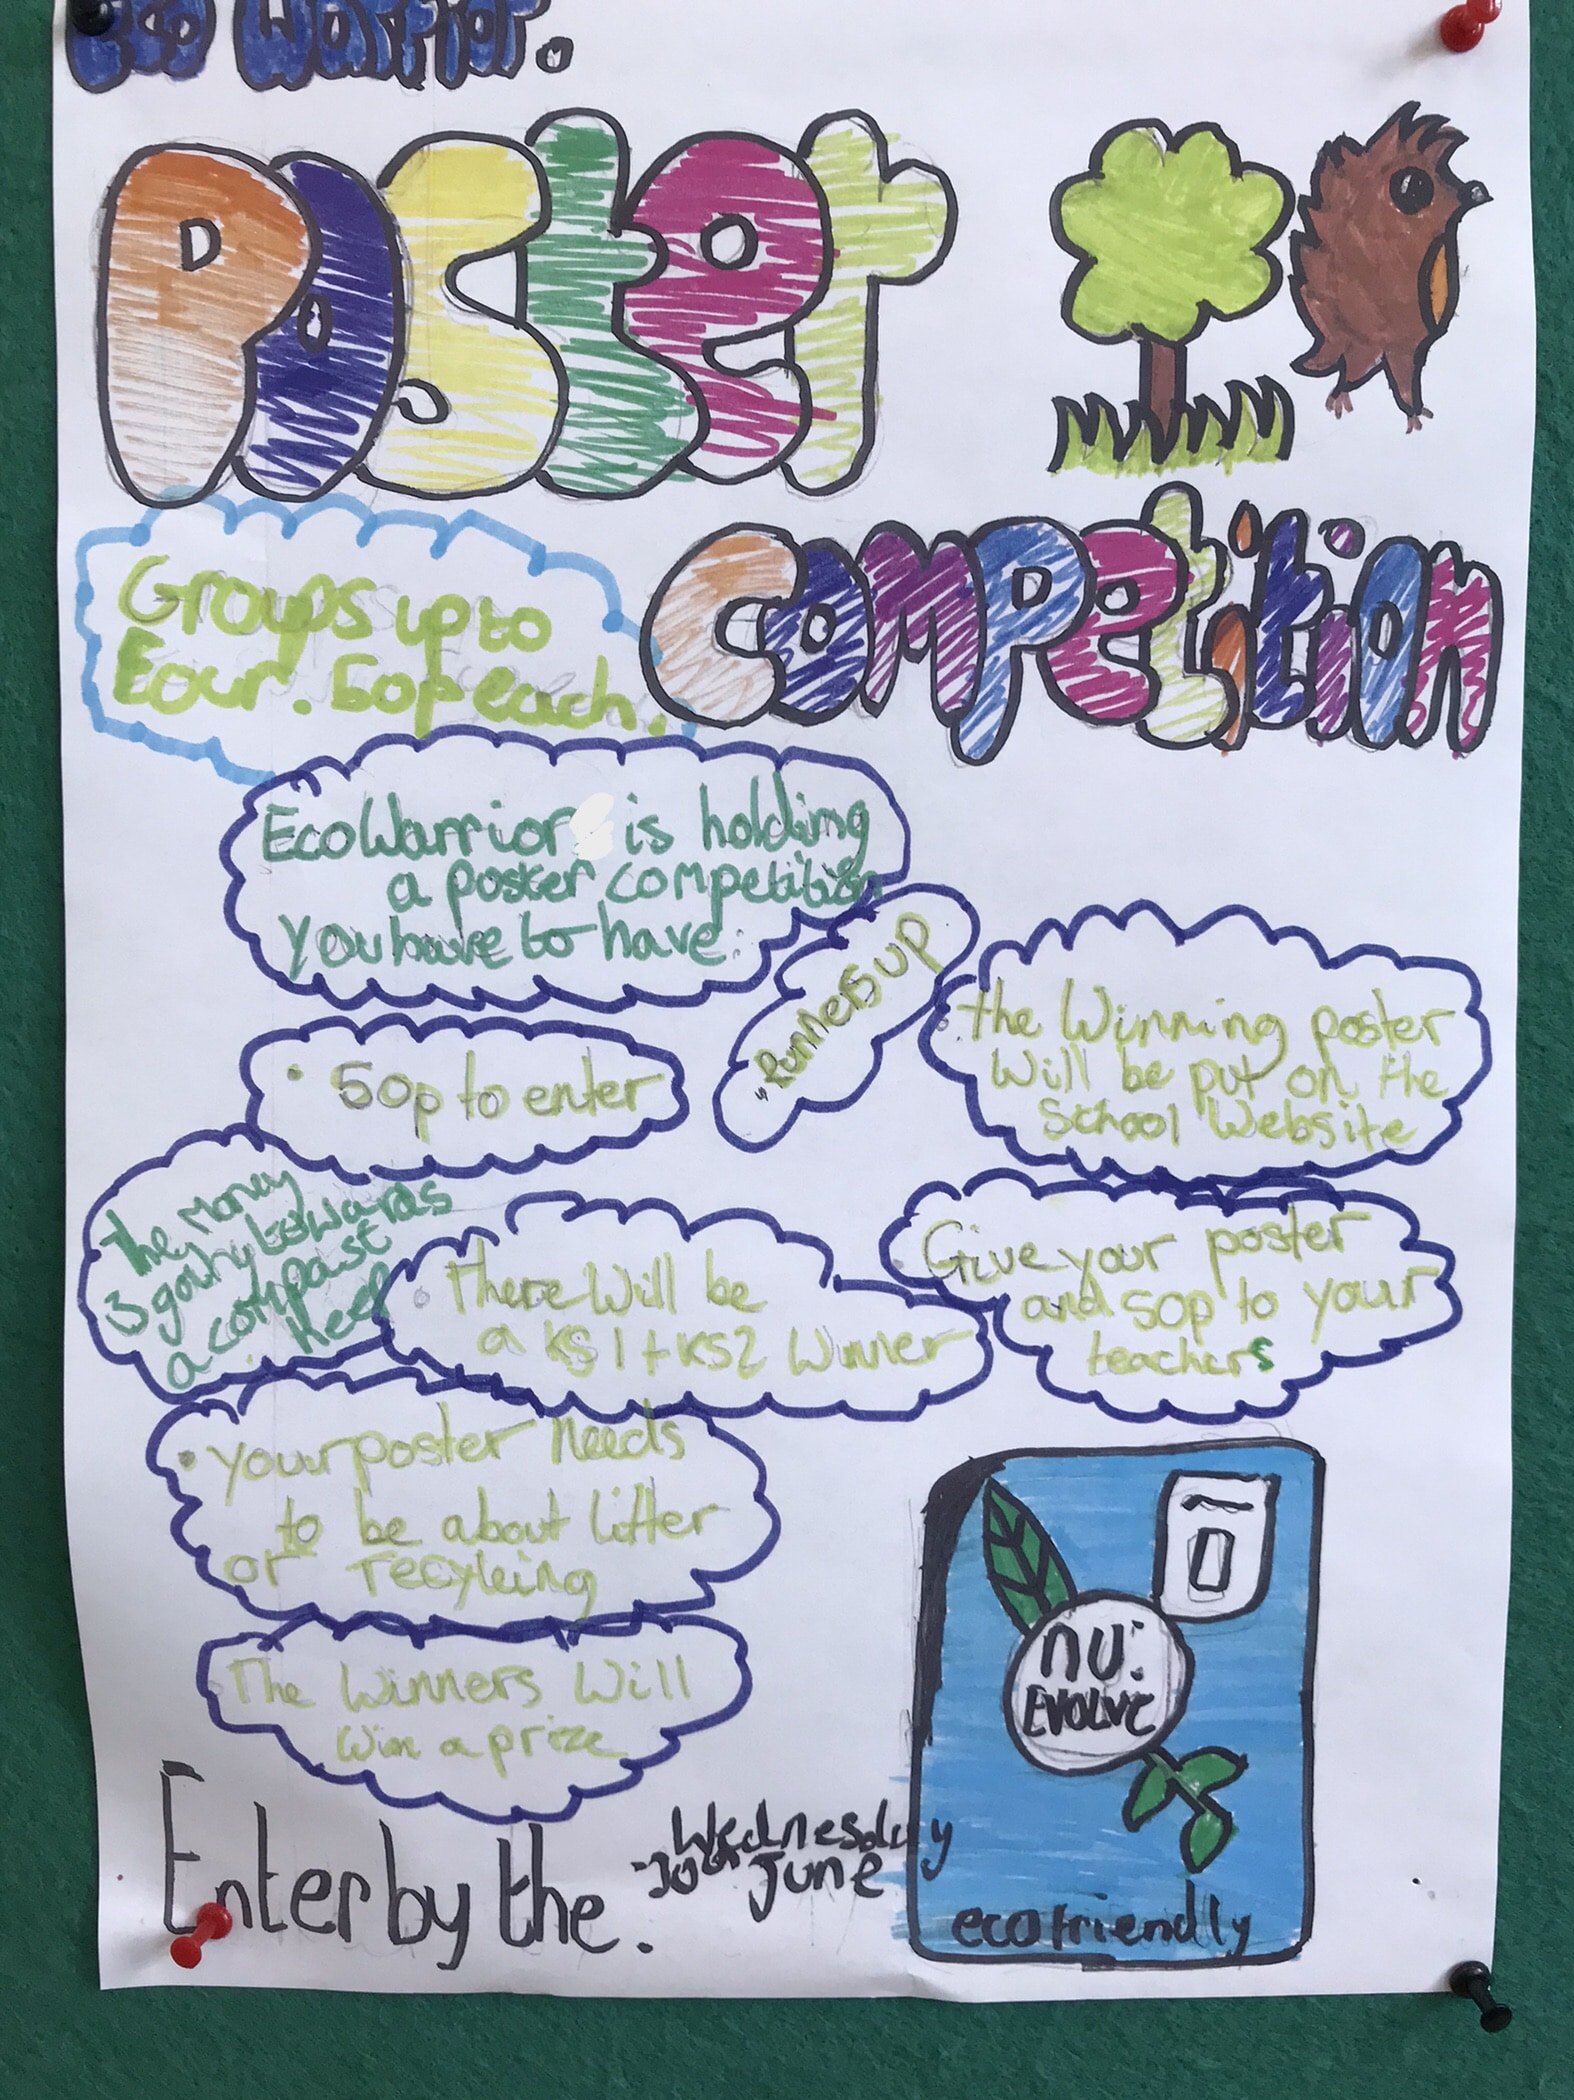 Eco Warrior.
Poster
Competition
Groups up to
Four. 50p each.
EcoWarrior is holding
a poster competition
you have to have:
"Runners up
• the Winning poster
Will be put on the
School Website
• 50p to enter
the Money
is going towards
a compost
heep
• There Will be
a KS1+KS2 Winner
• Give your poster
and 50p to your
teachers
• your poster Needs
to be about litter
or recykling
• The Winners Will
Win a prize
nu:
EVOLVE
ecofriendly
Enter by the. Wednesday
30th June